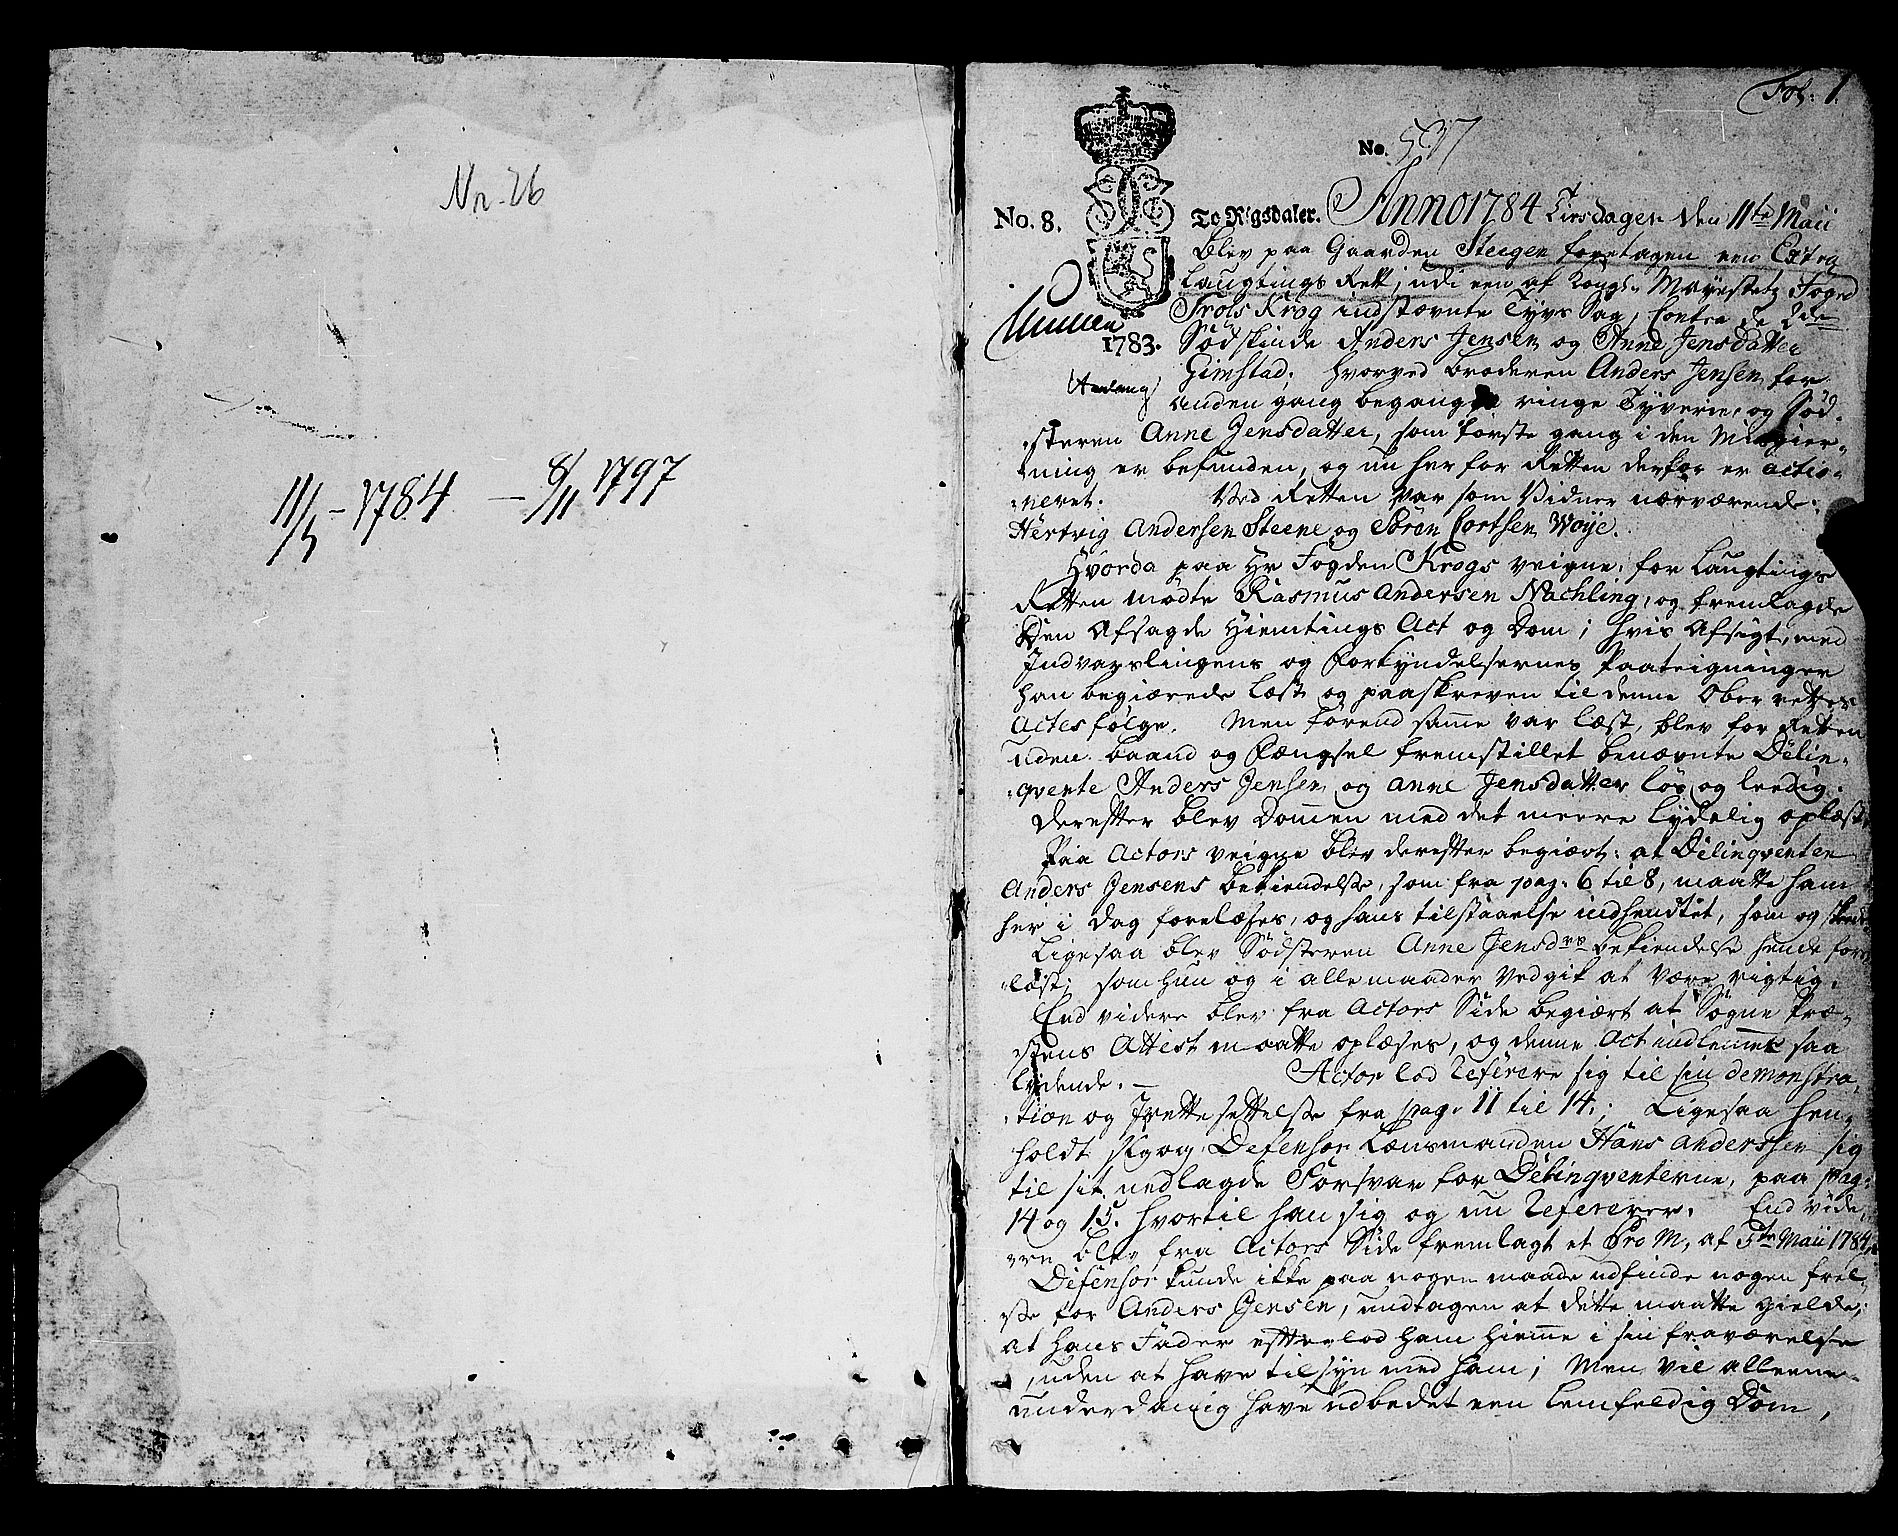 Nr. 26
11/5 - 1784 - 8/11 1797
Fol: 1.
No. 537
No. 8. To Rigsdaler. Anno 1784 Tirsdagen den 11te Maii
blev paa Gaarden Steegen foretagen een Extra
Laugtings Rett, udi een af Kongl. Mayestetz Foged
Trols Krog indstævnte Tyvs Sag, Contra de 2de
1783. Södskinde Anders Jensen og Anne Jensdatter
Gimstad; hvorved broderen Anders Jensen for
anden gang begangne ringe Tyverie, og Söd-
steren Anne Jensdatter, som förste gang i den Misgier-
ning er befunden, og nu her for Retten derfor er actio-
neret. Ved Retten var som Vidner nærværende:
Hertvig Andersen Steene og Sören Cortsen Woje.
Hvorda paa Hr Fogden Krogs veigne, for Laugtings
Retten mödte Rasmus Andersen Nachling, og fremlagde
den afsagde Hiemtings Act og Dom; hvis afsigt, med
Indvarslingens og Forkyndelsernes Paateigninger
han begiærede læst og paaskreven til denne Ober rettes
Actes fölge. Men förend samme var læst, blev for Retten
uden baand og Fængsel fremstillet benævnte Delin-
qvente Anders Jensen og Anne Jensdatter lös og leedig.
Derefter blev Dommen med det meere lydelig oplæst
Paa Actors veigne blev derefter begiært: at Delinqventen
Anders Jensens bekiendelse, som fra pag. 6 til 8, maatte ham
her i dag forelæses, og hans tilstaaelse indhendtet, som og skede
Ligesaa blev Södsteren Anne Jensdrs bekiendelse hende fore-
læst; som hun og i alle maader vedgik at være rigtig.
End videre blev fra Actors Side begiært at Sogne Præ-
stens Attest maatte oplæses, og denne Act indlemmet saa
lydende. - Actor lod referere sig til sin demonstra-
tion og Irettesettelse fra pag. 11 til 14.; Ligesaa hen-
holdt sig og Defensor Lænsmanden Hans Anderssen sig
til sit nedlagde Forsvar for Delinqventerne, paa pag:
14 og 15. hvortil han sig og nu refererer. End vide-
re blev fra Actors Side fremlagt et Pro M, af 5te Maii 1784,
Defensor kunde ikke paa nogen maade udfinde nogen frel-
se for Anders Jensen, undtagen at dette maatte gielde,
at hans Fader efterlod ham hiemme i sin fraværelse
uden at have tilsyn med ham; Men vil alleene
underdanig have udbedet een lemfeldig Dom,